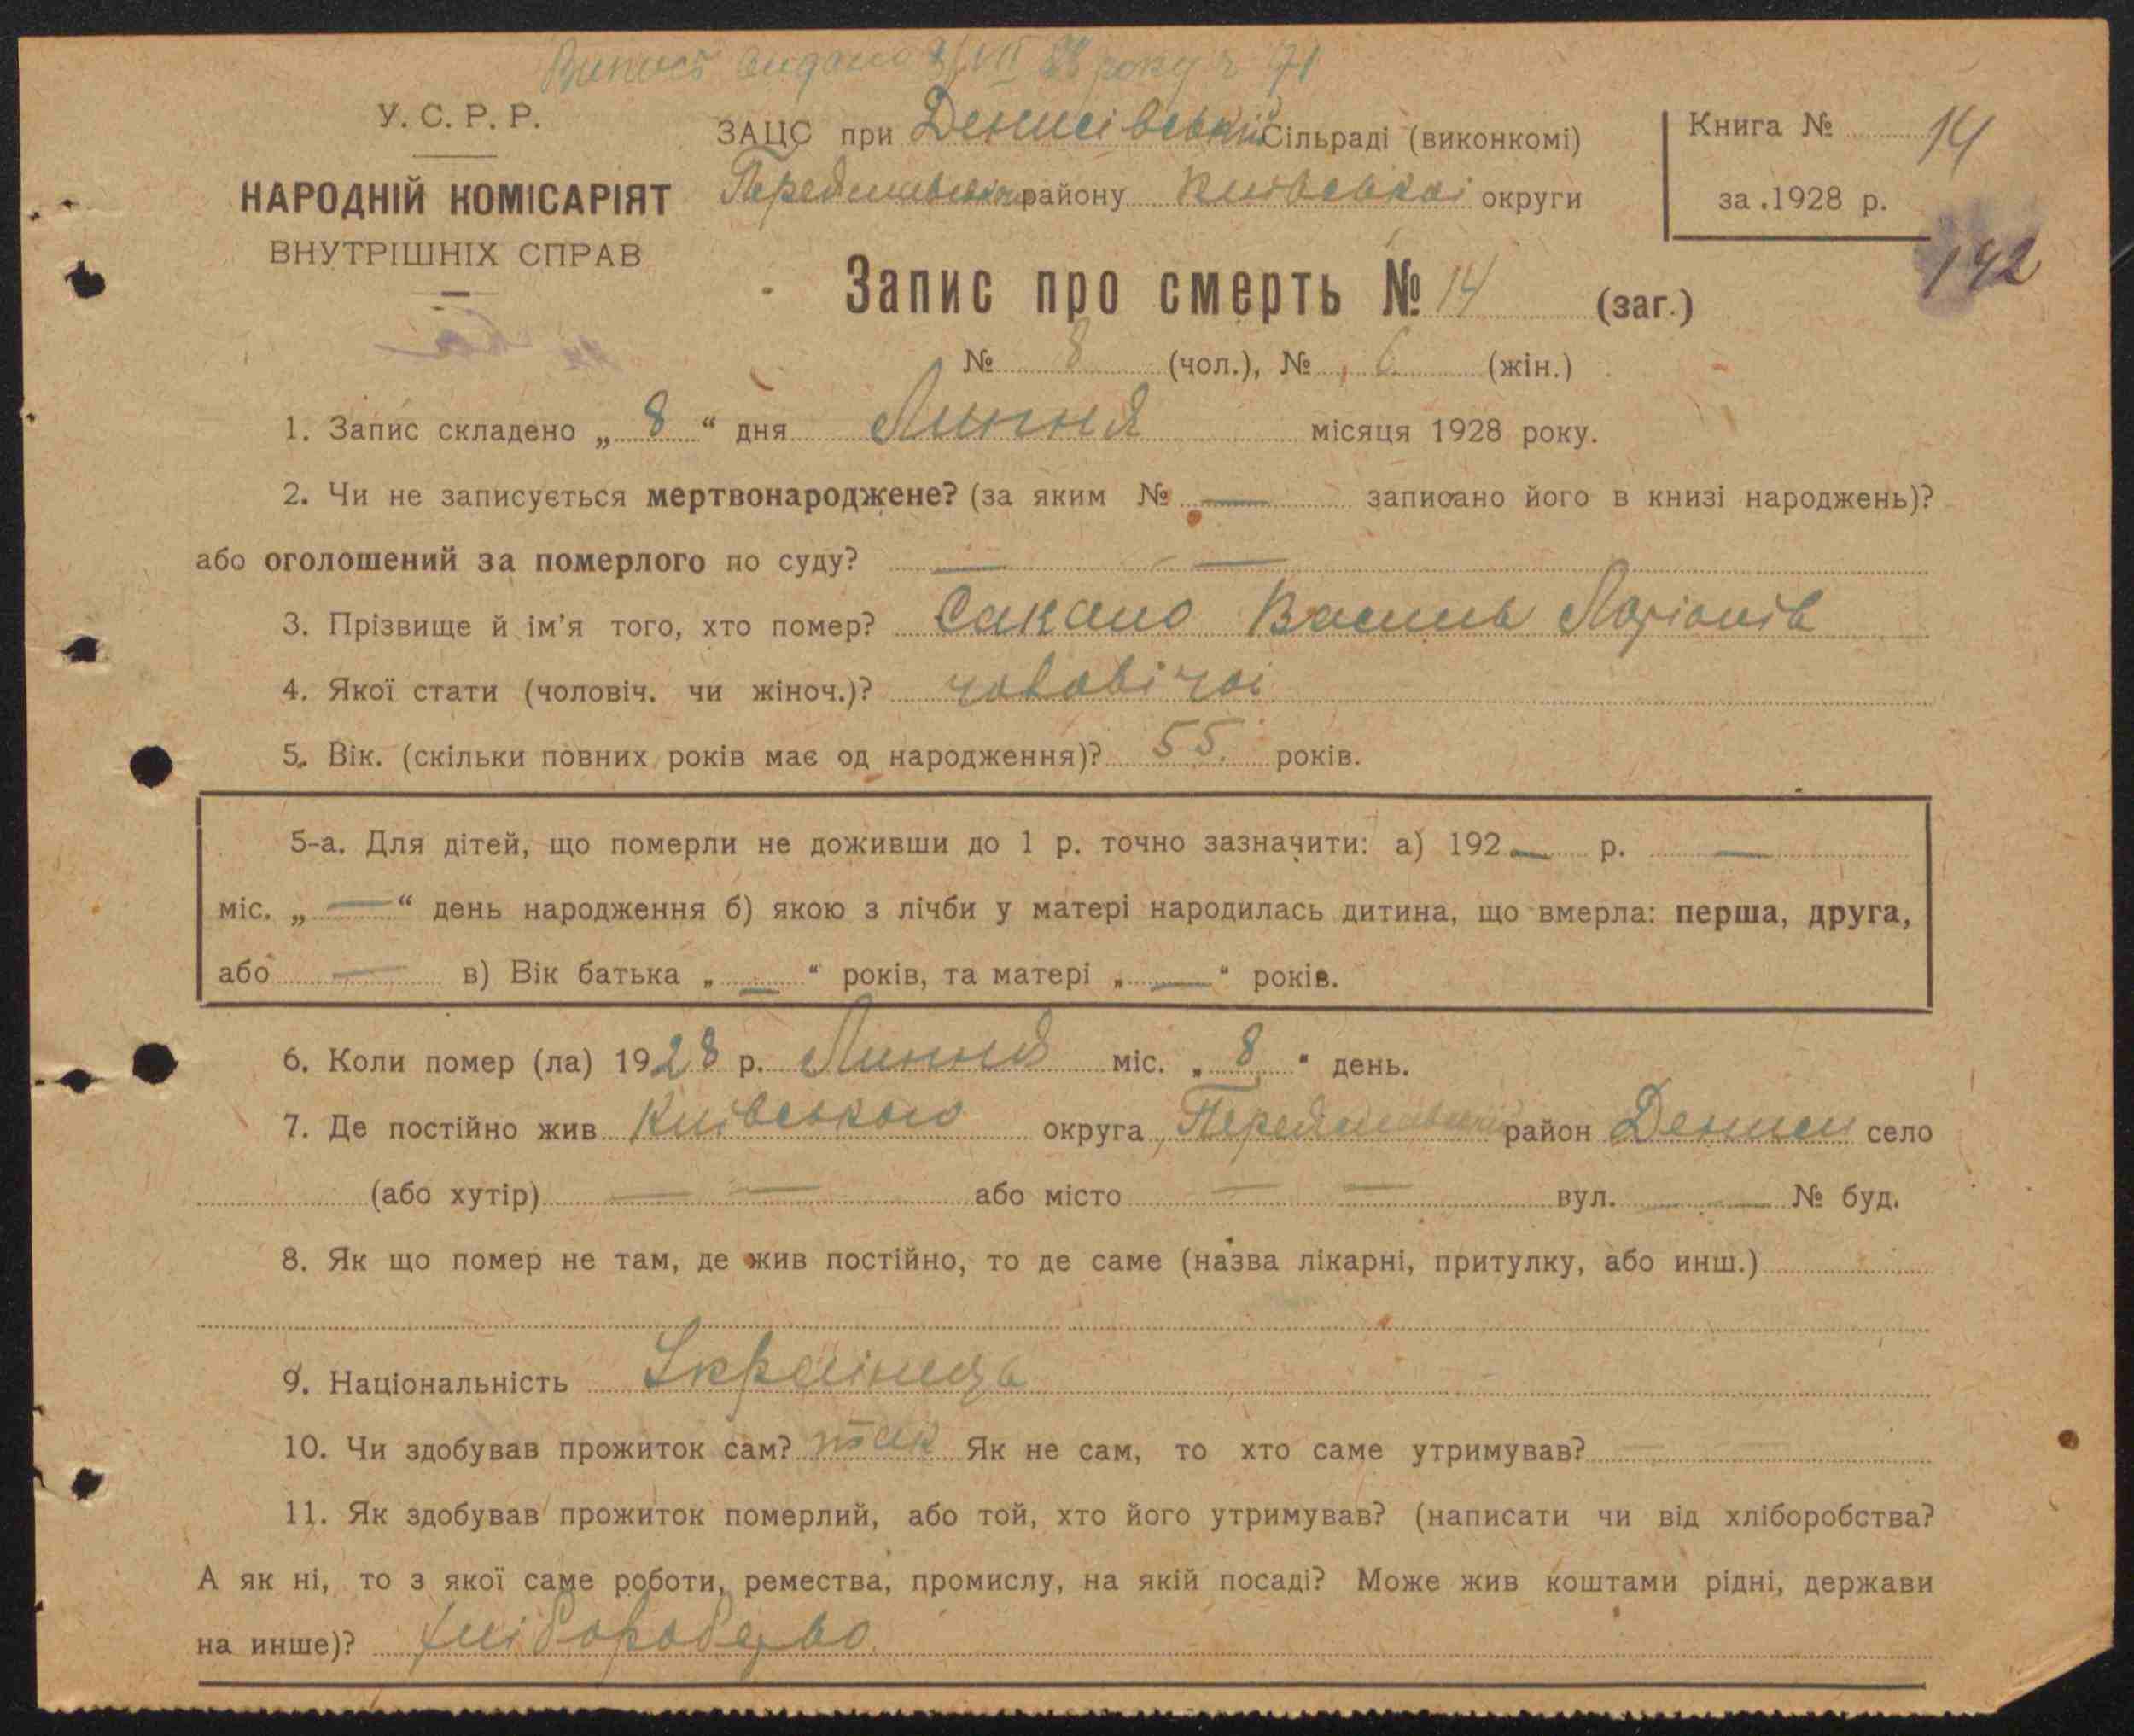 Випись видано 8/VII 28 року ч 71
У. С. Р. Р.
НАРОДНІЙ КОМІСАРІЯТ
ВНУТРІШНІХ СПРАВ
ЗАЦС при Денисівській Сільраді (виконкомі)
Переяславського району Київської округи
Книга № 14
за 1928 р.
142
Запис про смерть № 14 (заг.)
№ 8 (чол.), № 6 (жін.)
1. Запис складено „ 8 “ дня Липня місяця 1928 року.
2. Чи не записується мертвонароджене? (за яким № — записано його в книзі народжень)?
або оголошений за померлого по суду? — —
3. Прізвище й ім’я того, хто помер? Василь Ларіонів
4. Якої стати (чоловіч. чи жіноч.)? чоловічої
5. Вік. (скільки повних років має од народження)? 55. років.
5-а. Для дітей, що померли не доживши до 1 р. точно зазначити: а) 192 — р. —
міс. „ — “ день народження б) якою з лічби у матері народилась дитина, що вмерла: перша, друга,
або — в) Вік батька „ — “ років, та матері „ — “ років.
6. Коли помер (ла) 1928 р. Липня міс. „ 8 “ день.
7. Де постійно жив Київського округа, Переяславський район Дениси село
(або хутір) — — або місто — — вул. — № буд.
8. Як що помер не там, де жив постійно, то де саме (назва лікарні, притулку, або инш.)
9. Національність Українець
10. Чи здобував прожиток сам? так Як не сам, то хто саме утримував? — —
11. Як здобував прожиток померлий, або той, хто його утримував? (написати чи від хліборобства?
А як ні, то з якої саме роботи, ремества, промислу, на якій посаді? Може жив коштами рідні, держави
на инше)? хліборобство.